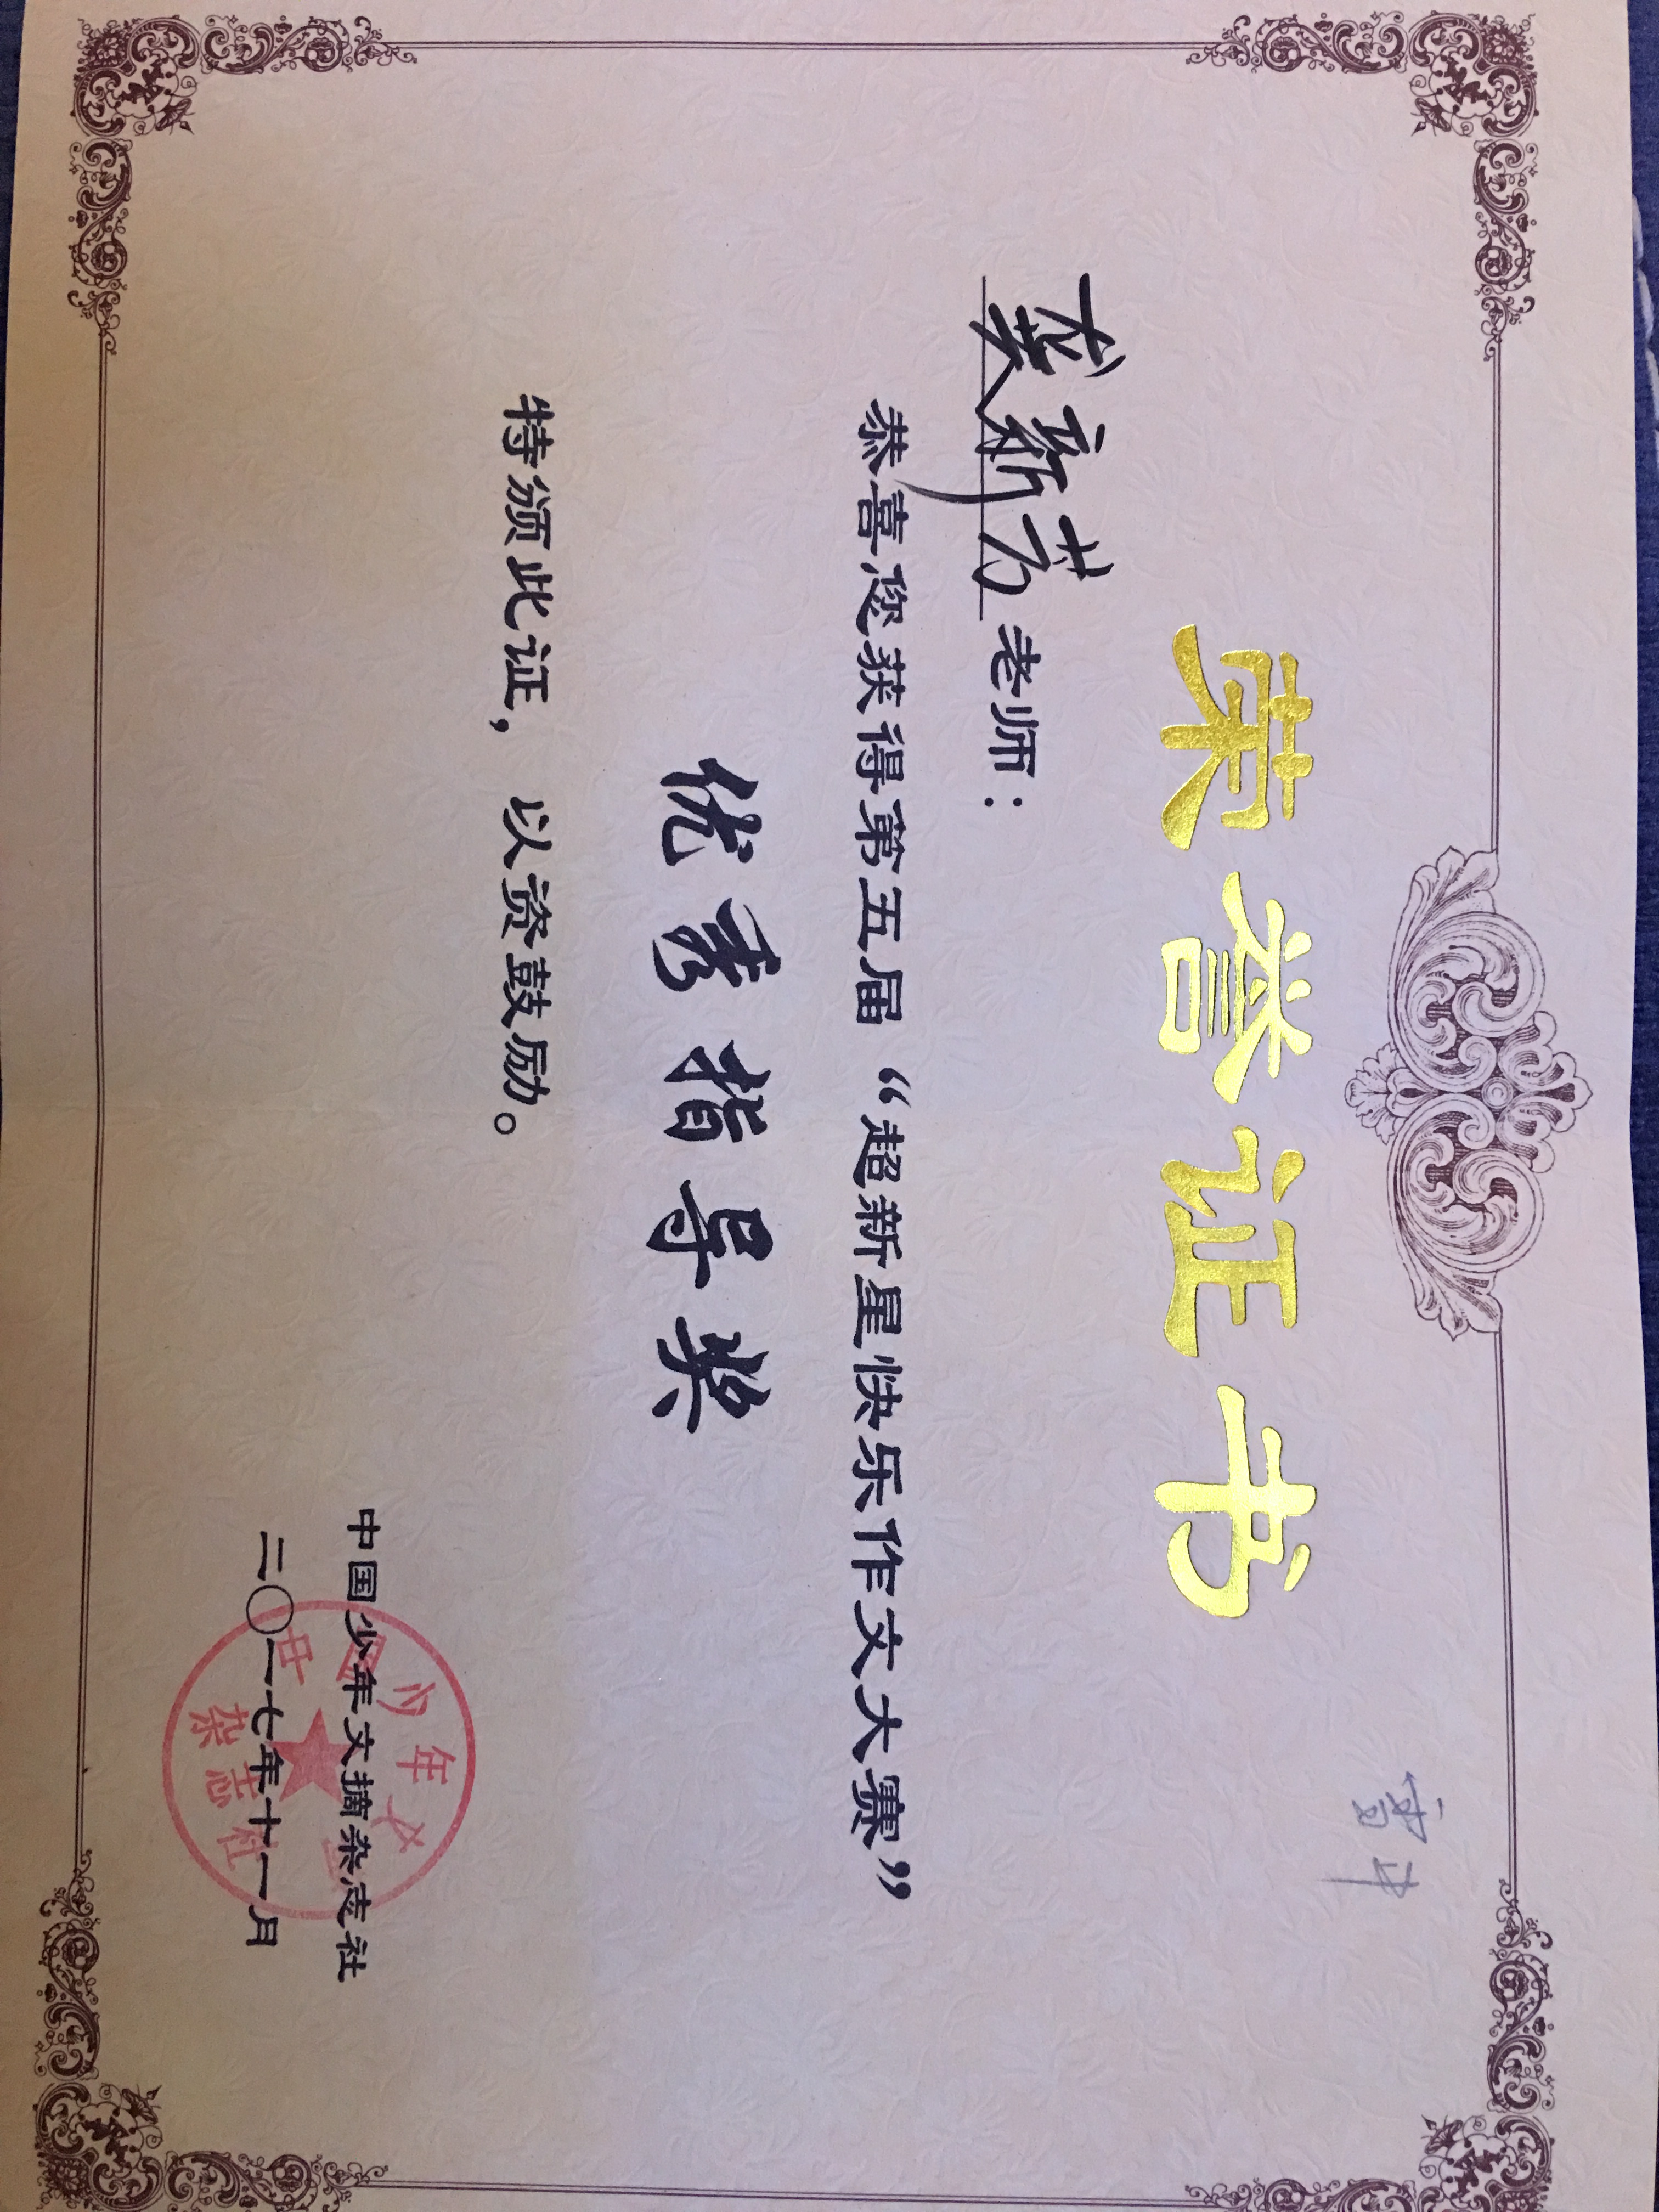 荣誉证书
龚新芳老师：
恭喜您获得第五届“超新星快乐作文大赛”
优秀指导奖
特颁此证，以资鼓励。
中国少年文摘杂志社
二〇一七年十一月
中国少年文摘
杂志社